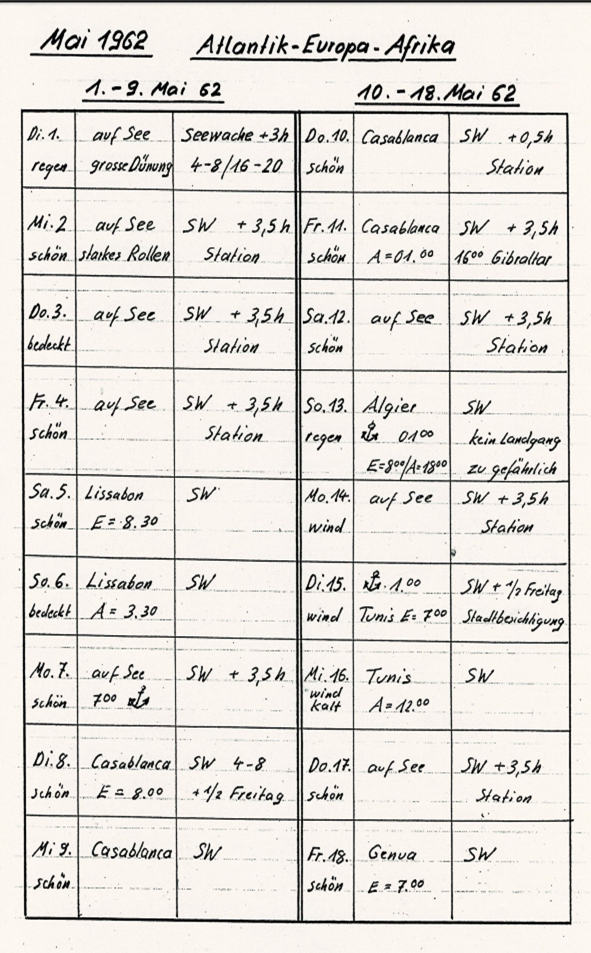 Mai 1962 Atlantik-Europa-Afrika
1.-9. Mai 62
Di. 1. auf See Seewache +3h
regen grosse Dünung 4-8/16-20
Mi. 2 auf See SW + 3,5h
schön starkes Rollen Station
Do. 3. auf See SW + 3,5h
bedeckt Station
Fr. 4. auf See SW + 3,5h
schön Station
Sa. 5. Lissabon SW
schön E = 8.30
So. 6. Lissabon SW
bedeckt A = 3.30
Mo. 7. auf See SW + 3,5h
schön 700 ⚓
Di. 8. Casablanca SW 4-8
schön E = 8.00 + 1/2 Freitag
Mi 9. Casablanca SW
schön
10.-18. Mai 62
Do. 10. Casablanca SW + 0,5h
schön Station
Fr. 11. Casablanca SW + 3,5h
schön A = 01.00 16⁰⁰ Gibraltar
Sa. 12. auf See SW + 3,5h
schön Station
So. 13. Algier SW
regen ⚓ 01⁰⁰ kein Landgang
E=8⁰⁰/A=18⁰⁰ zu gefährlich
Mo. 14. auf See SW + 3,5h
wind Station
Di. 15. ⚓ 1.00 SW + 1/2 Freitag
wind Tunis E = 7⁰⁰ Stadtbesichtigung
Mi. 16. Tunis SW
wind
kalt A = 12.00
Do. 17. auf See SW + 3,5h
schön Station
Fr. 18. Genua SW
schön E = 7.00